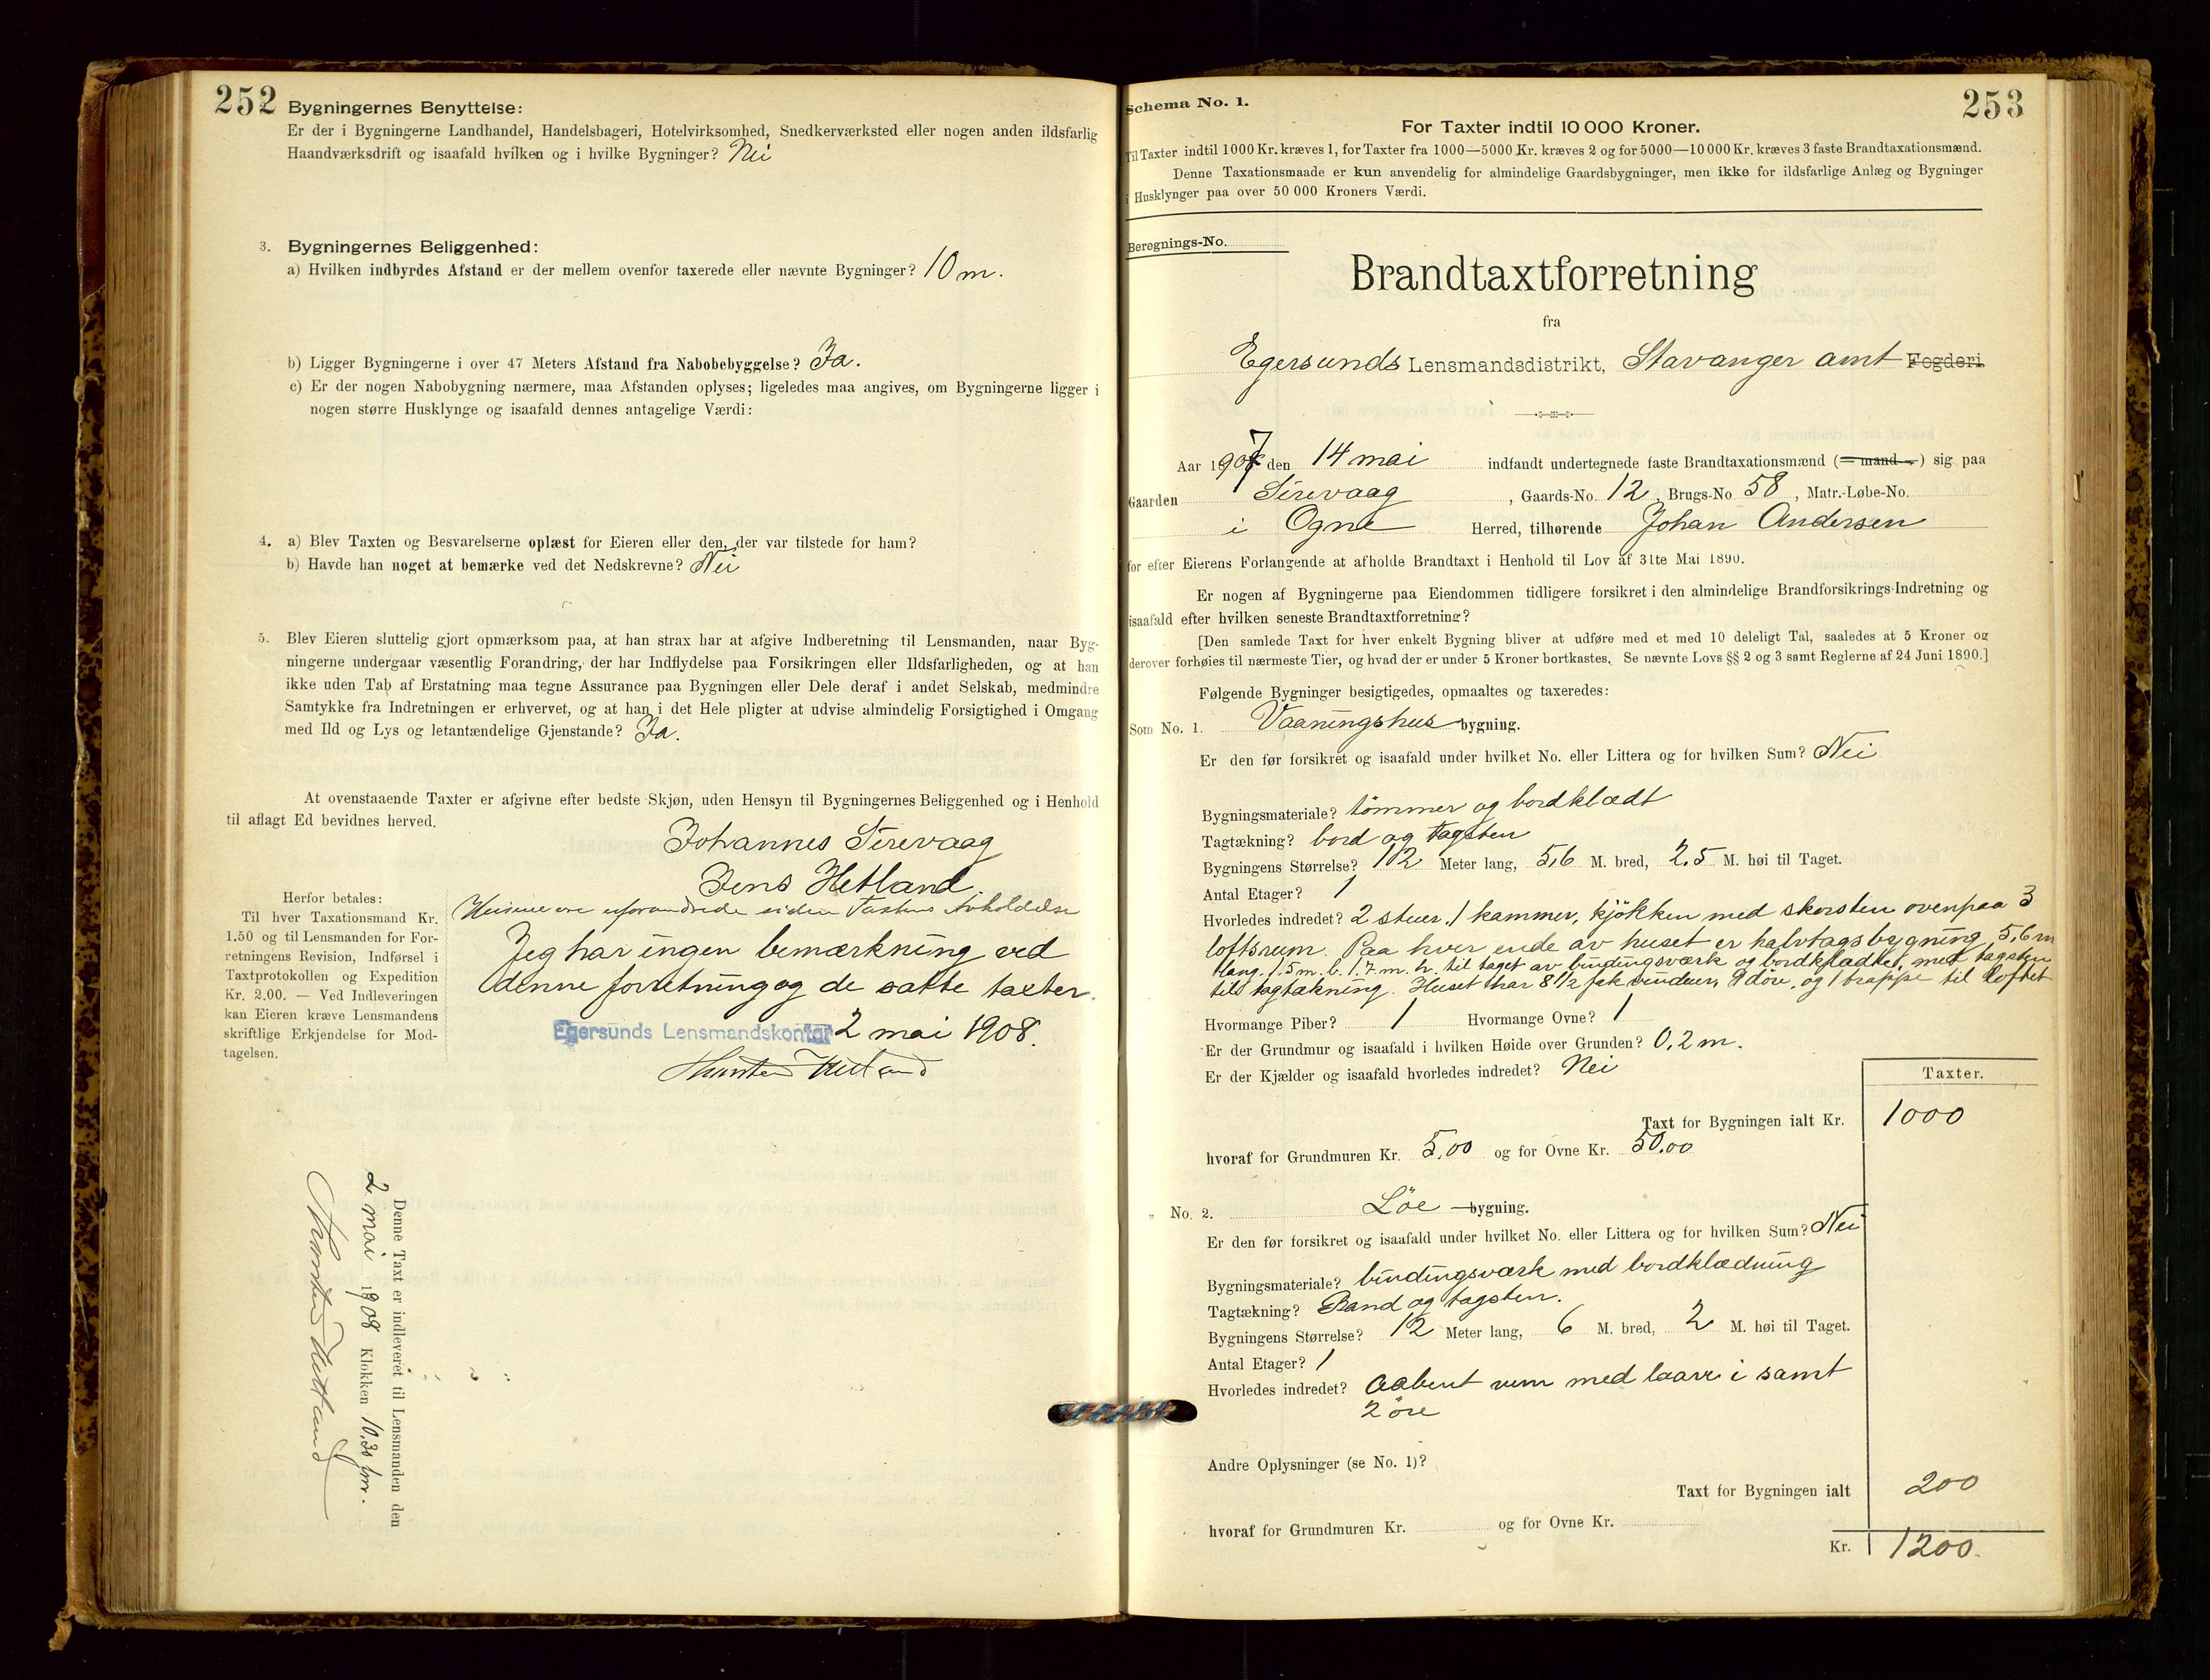 252
Bygningernes Benyttelse:
Er der i Bygningerne Landhandel, Handelsbageri, Hotelvirksomhed, Snedkerværksted eller nogen anden ildsfarlig
Haandværksdrift og isaafald hvilken og i hvilke Bygninger? Nei
3. Bygningernes Beliggenhed:
a) Hvilken indbyrdes Afstand er der mellem ovenfor taxerede eller nævnte Bygninger? 10 m.
b) Ligger Bygningerne i over 47 Meters Afstand fra Nabobebyggelse? Ja.
c) Er der nogen Nabobygning nærmere, maa Afstanden oplyses; ligeledes maa angives, om Bygningerne ligger i
nogen større Husklynge og isaafald dennes antagelige Værdi:
4. a) Blev Taxten og Besvarelserne oplæst for Eieren eller den, der var tilstede for ham?
b) Havde han noget at bemærke ved det Nedskrevne? Nei
5. Blev Eieren sluttelig gjort opmærksom paa, at han strax har at afgive Indberetning til Lensmanden, naar Byg-
ningerne undergaar væsentlig Forandring, der har Indflydelse paa Forsikringen eller Ildsfarligheden, og at han
ikke uden Tab af Erstatning maa tegne Assurance paa Bygningen eller Dele deraf i andet Selskab, medmindre
Samtykke fra Indretningen er erhvervet, og at han i det Hele pligter at udvise almindelig Forsigtighed i Omgang
med Ild og Lys og letantændelige Gjenstande? Ja.
At ovenstaaende Taxter er afgivne efter bedste Skjøn, uden Hensyn til Bygningernes Beliggenhed og i Henhold
til aflagt Ed bevidnes herved.
Johannes Sirevaag
Jens Hetland.
Husene ere uforandrede siden Taxtens Avholdelse
Jeg har ingen bemærkning ved
denne forretning og de satte taxter.
Egersunds Lensmandskontor 2 mai 1908.
Hetland
Herfor betales:
Til hver Taxationsmand Kr.
1.50 og til Lensmanden for For-
retningens Revision, Indførsel i
Taxtprotokollen og Expedition
Kr. 2.00. — Ved Indleveringen
kan Eieren kræve Lensmandens
skriftlige Erkjendelse for Mod-
tagelsen.
Denne Taxt er indleveret til Lensmanden den
2 mai 1908 Klokken 10.30 fm.
Hetland
Schema No. 1.
253
For Taxter indtil 10 000 Kroner.
Til Taxter indtil 1000 Kr. kræves 1, for Taxter fra 1000—5000 Kr. kræves 2 og for 5000—10 000 Kr. kræves 3 faste Brandtaxationsmænd.
Denne Taxationsmaade er kun anvendelig for almindelige Gaardsbygninger, men ikke for ildsfarlige Anlæg og Bygninger
i Husklynger paa over 50 000 Kroners Værdi.
Beregnings-No.
Brandtaxtforretning
fra
Egersunds Lensmandsdistrikt, Stavanger amt Fogderi
Aar 1907 den 14 mai indfandt undertegnede faste Brandtaxationsmænd (= mand =) sig paa
Gaarden Sirevaag, Gaards-No. 12, Brugs-No. 58, Matr.-Løbe-No.
i Ogne Herred, tilhørende Johan Andersen
for efter Eierens Forlangende at afholde Brandtaxt i Henhold til Lov af 31te Mai 1890.
Er nogen af Bygningerne paa Eiendommen tidligere forsikret i den almindelige Brandforsikrings-Indretning og
isaafald efter hvilken seneste Brandtaxtforretning?
[Den samlede Taxt for hver enkelt Bygning bliver at udføre med et med 10 deleligt Tal, saaledes at 5 Kroner og
derover forhøies til nærmeste Tier, og hvad der er under 5 Kroner bortkastes. Se nævnte Lovs §§ 2 og 3 samt Reglerne af 24 Juni 1890.]
Følgende Bygninger besigtigedes, opmaaltes og taxeredes:
Som No. 1. Vaaningshus bygning.
Er den før forsikret og isaafald under hvilket No. eller Littera og for hvilken Sum? Nei
Bygningsmateriale? tömmer og bordklædt
Tagtækning? bord og tagsten
Bygningens Størrelse? 12 Meter lang, 5,6 M. bred, 2.5 M. høi til Taget.
Antal Etager? 1
Hvorledes indredet? 2 stuer, 1 kammer, kjökken med skorsten ovenpaa 3
loftsrum. Paa hver ende av huset er halvtagsbygning 5,6 m
lang. 1.5 m. b. 1.7 m. h. til taget av bindingsværk og bordklædtet, med tagsten
til tagtækning. Huset har 8 1/2 fak vinduer, döre, og 1 trappe til loftet
Hvormange Piber? 1 Hvormange Ovne? 1
Er der Grundmur og isaafald i hvilken Høide over Grunden? 0,2 m.
Er der Kjælder og isaafald hvorledes indredet? Nei
Taxter.
Taxt for Bygningen ialt Kr. 1000
hvoraf for Grundmuren Kr. 5,00 og for Ovne Kr. 50,00
" No. 2. Löe bygning.
Er den før forsikret og isaafald under hvilket No. eller Littera og for hvilken Sum? Nei
Bygningsmateriale? bindingsværk med bordklædning
Tagtækning? Band og tagsten.
Bygningens Størrelse? 12 Meter lang, 6 M. bred, 2 M. høi til Taget.
Antal Etager? 1
Hvorledes indredet? Aabent rum med laave i samt
2 öre
Andre Oplysninger (se No. 1)?
Taxt for Bygningen ialt 200
hvoraf for Grundmuren Kr. og for Ovne Kr.
Kr. 1200.